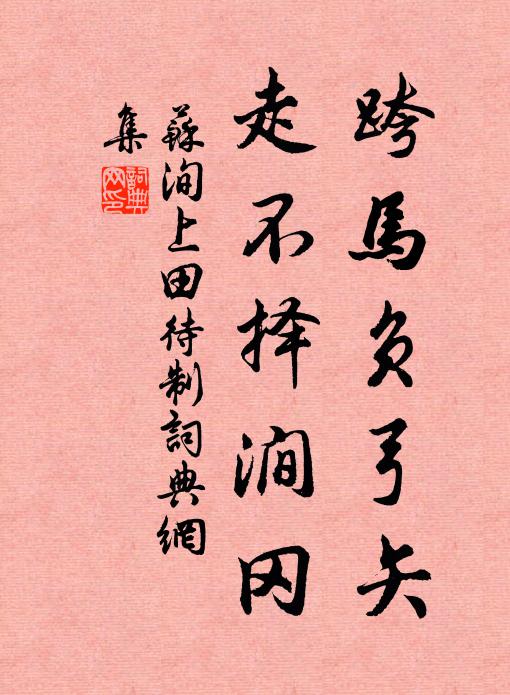 跨馬負弓矢
走不择澗冈
蘇洵上田待制詞典網
集
詞典
网印